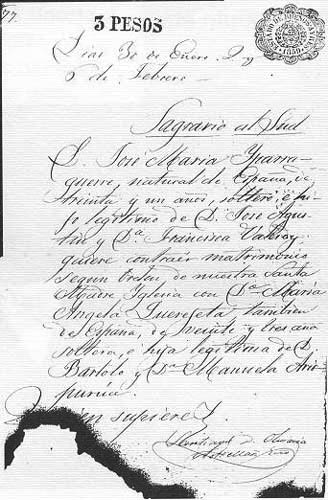 77.
3 PESOS
ESTADO DE BUENOS AYRES
1859
Dias 30 de Enero 2 y
6 de Febrero
Sagrario al Sud
D. José Maria Yparra-
guerre, natural de España, de
treinta y un años, soltero, é hi-
jo legitimo de D. José Agus-
tin y D.ª Francisca
quiere contraer matrimonio
segun orden de nuestra Santa
Madre Iglesia con D.ª Maria
Angela Querejeta tambien
de España, de veinte y tres años
soltera, é hija legitima de D.
Bartolo y D.ª Manuela Aris-
purúa.
Quien supiere &